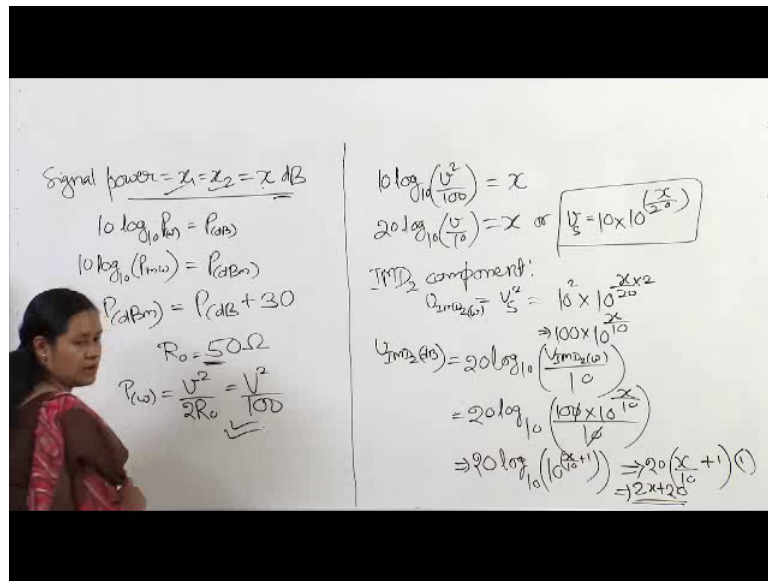 Signal power = x₁ = x₂ = x dB
10 log₁₀ P(w) = P(dB)
10 log₁₀ (P mw) = P(dBm)
P(dBm) = P(dB + 30
R₀ = 50Ω
P(w) = v²/2R₀ = V²/100
10 log₁₀ (v²/100) = x
20 log₁₀ (v/10) = x or v_s = 10 × 10^(x/20)
IMD₂ component:
v_IMD₂(w) = v_s² = 10² × 10^(x/20 × 2)
⇒ 100 × 10^(x/10)
v_IMD₂(dB) = 20 log₁₀ (v_IMD₂(w)/10)
= 20 log₁₀ (100 × 10^(x/10)/10)
⇒ 20 log₁₀ (10^(x/10 + 1)) ⇒ 20 (x/10 + 1) (1)
⇒ 2x + 20